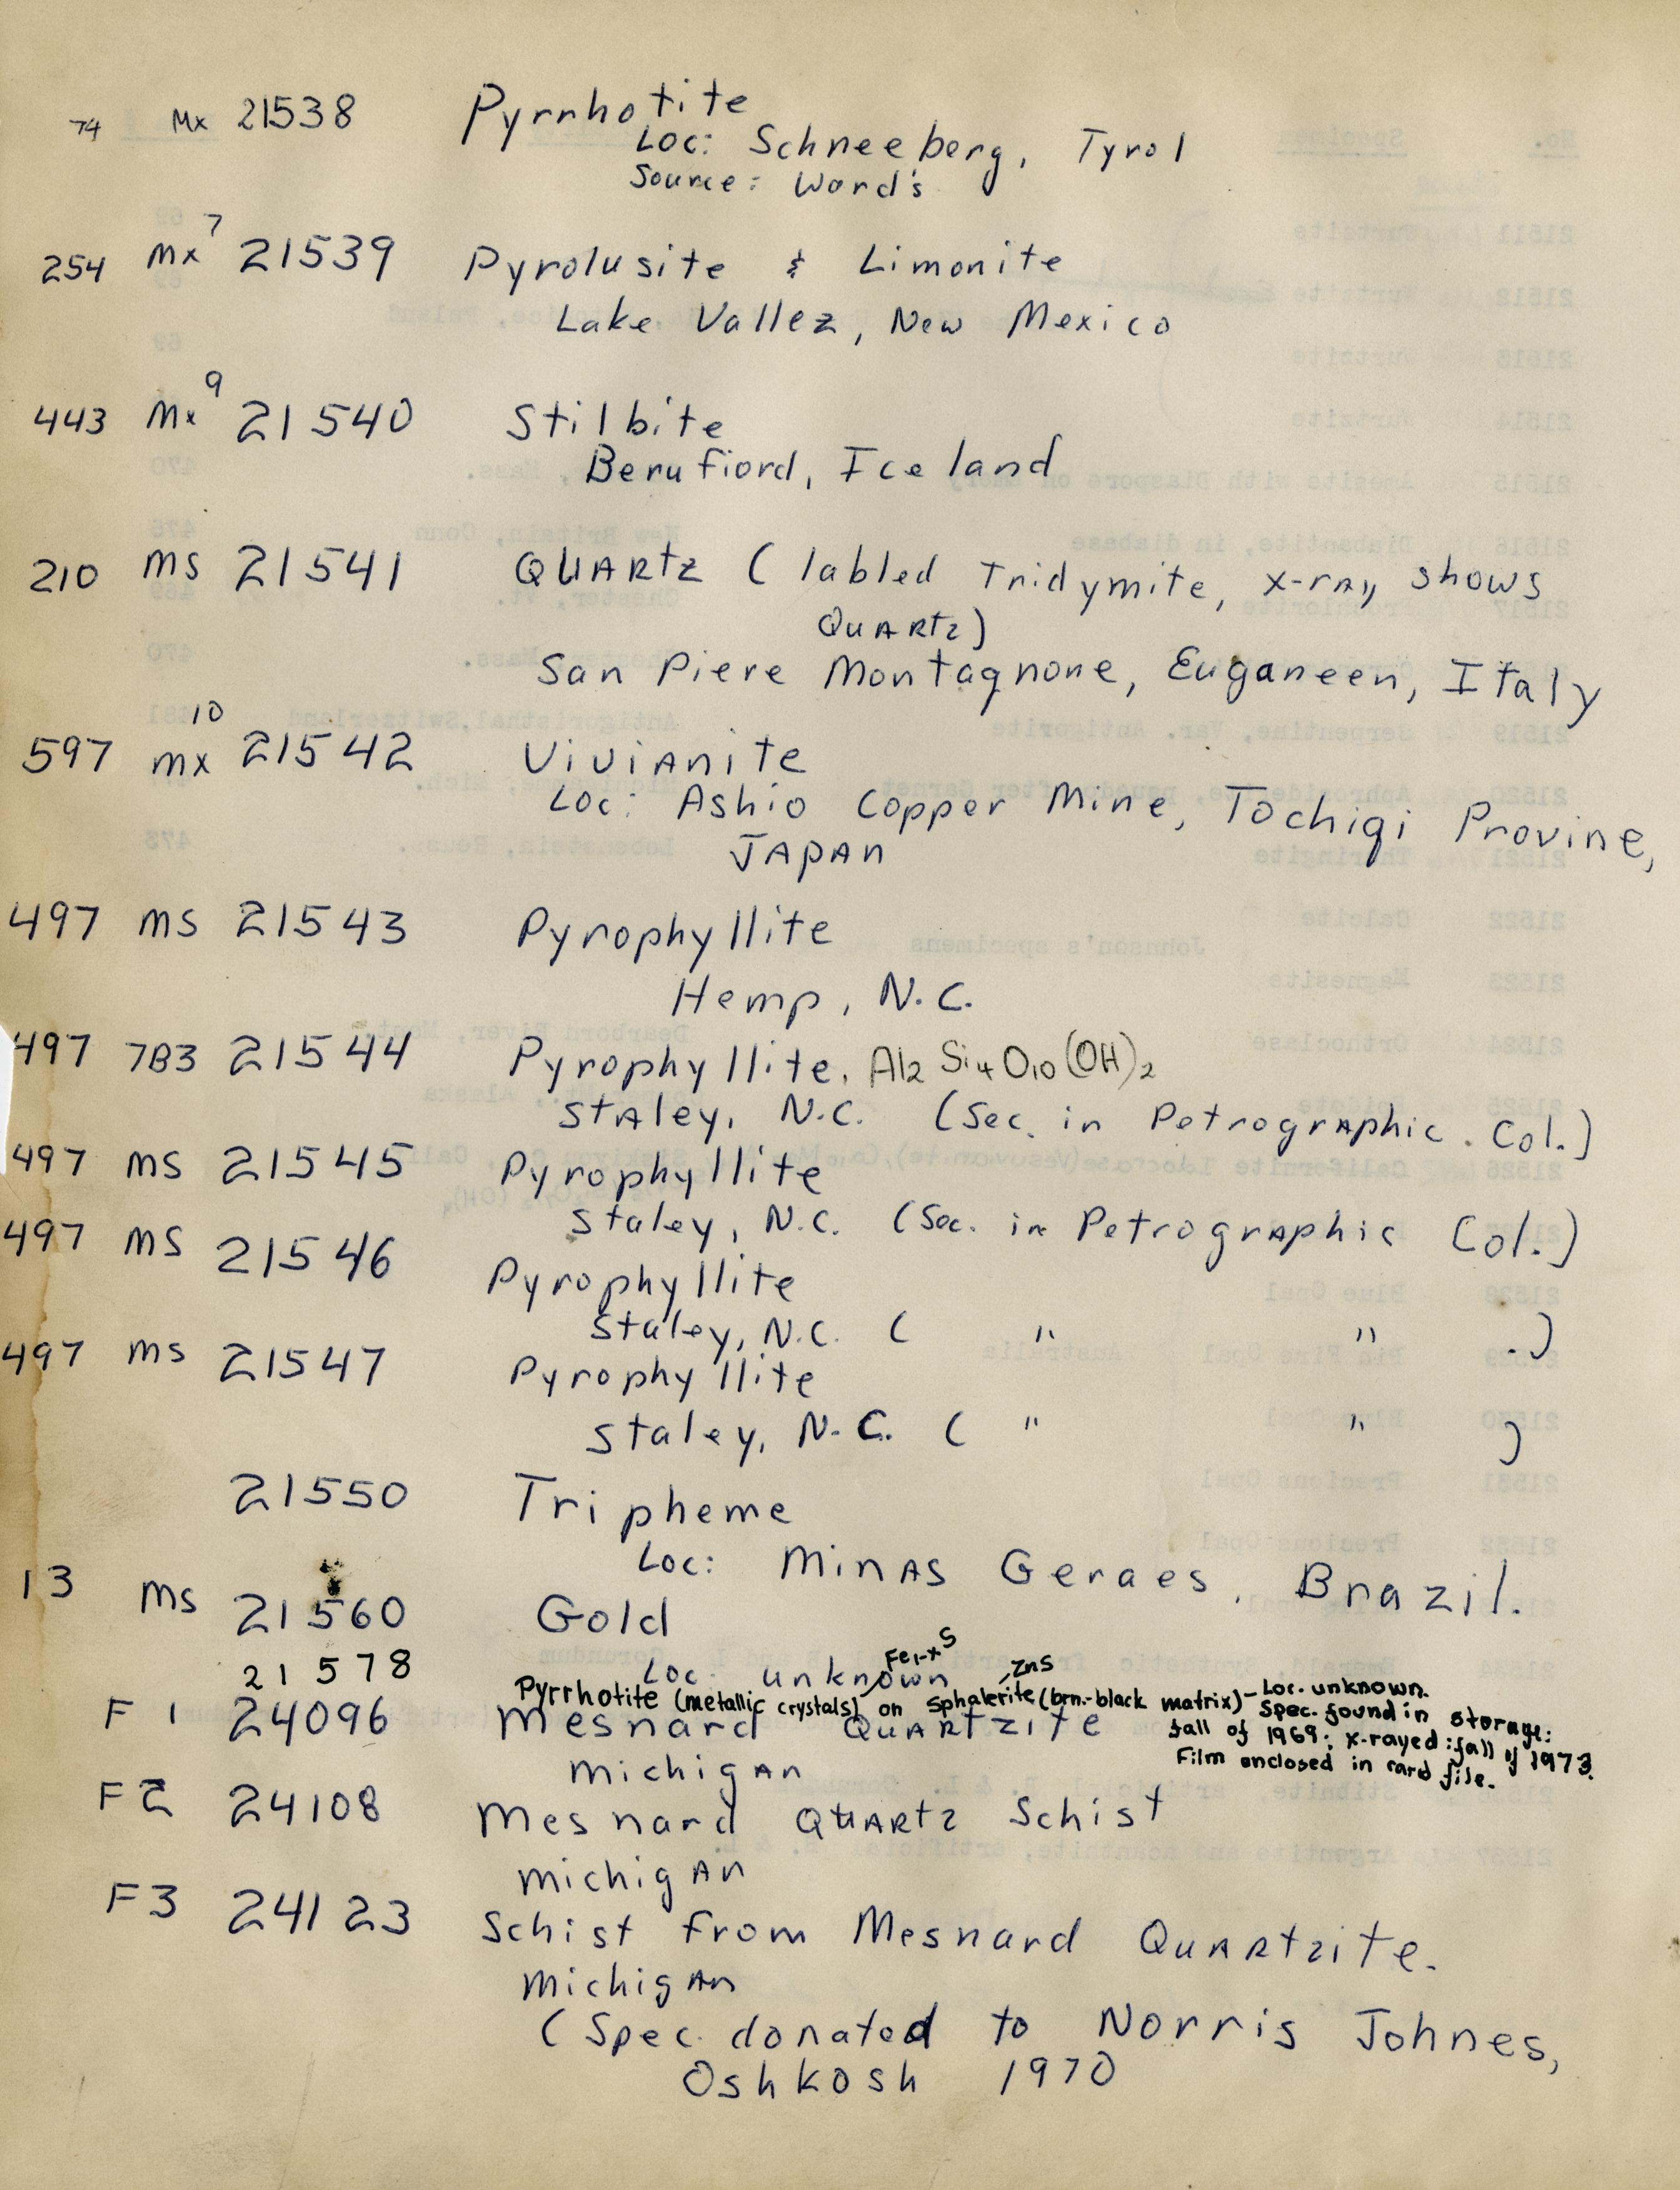 74 Mx 21538 Pyrrhotite
Loc: Schneeberg, Tyrol
Source: Ward's
254 Mx 7 21539 Pyrolusite & Limonite
Lake Vallez, New Mexico
443 Mx 9 21540 Stilbite
Beru fiord, Iceland
210 MS 21541 Quartz (labled Tridymite, x-ray shows
Quartz)
San Piere Montagnone, Euganeen, Italy
597 mx 10 21542 Vivianite
Loc: Ashio Copper Mine, Tochigi Provine,
Japan
497 MS 21543 Pyrophyllite
Hemp, N.C.
497 7B3 21544 Pyrophyllite. Al2 Si4 O10 (OH)2
Staley, N.C. (Sec. in Petrographic. Col.)
497 MS 21545 Pyrophyllite
Staley, N.C. (Sec. in Petrographic Col.)
497 MS 21546 Pyrophyllite
Staley, N.C. ( " " .)
497 MS 21547 Pyrophyllite
Staley, N.C. ( " " )
21550 Tripheme
Loc: Minas Geraes, Brazil.
13 MS 21560 Gold
Loc. unknown
21578 Pyrrhotite (metallic crystals) Fe1-xS on sphalerite ZnS (brn.-black matrix) - Loc. unknown.
Spec. found in storage:
fall of 1969; x-rayed: fall of 1973.
Film enclosed in card file.
F 1 24096 Mesnard Quartzite
Michigan
F2 24108 Mesnard Quartz Schist
Michigan
F3 24123 Schist from Mesnard Quartzite.
Michigan
(Spec. donated to Norris Johnes,
Oshkosh 1970